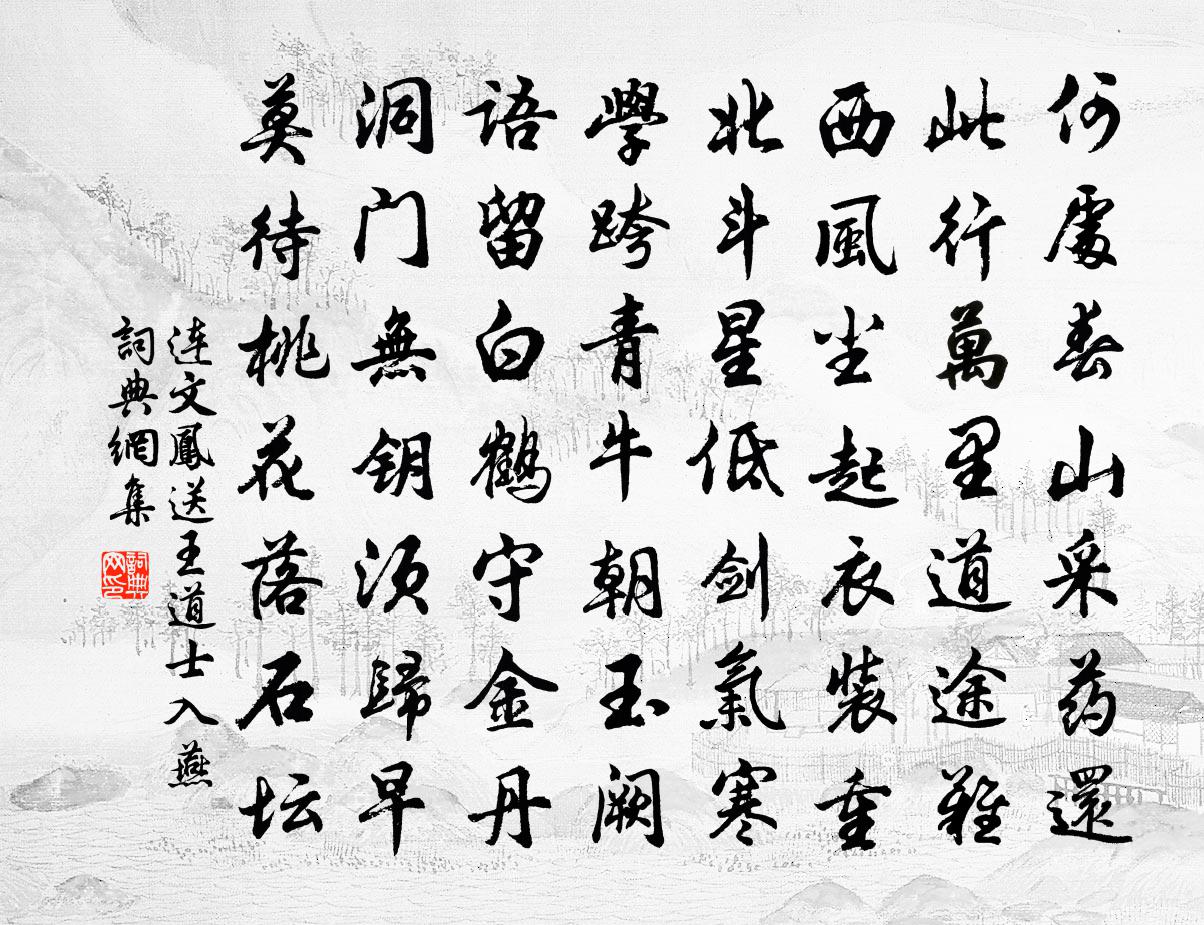 何處春山采药還
此行萬里道途難
西風尘起衣装重
北斗星低剑氣寒
學跨青牛朝玉阙
语留白鹤守金丹
洞门無钥须歸早
莫待桃花落石坛
连文鳳送王道士入燕
詞典網集
詞典
网印